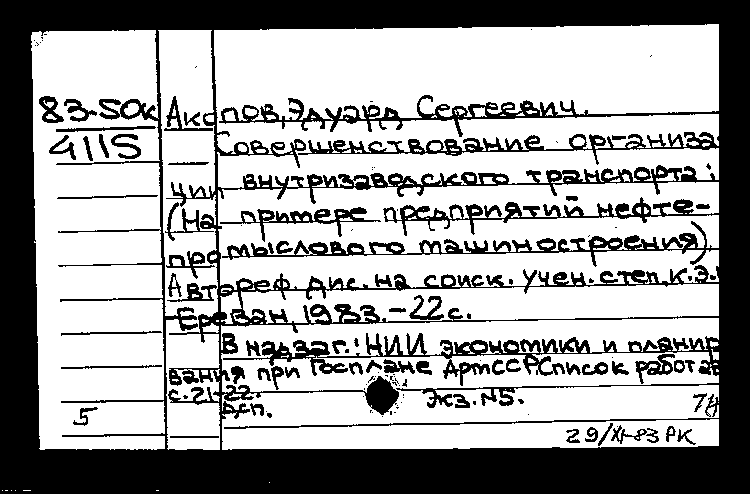 83-50к Акопов, Эдуард Сергеевич.
4115 Совершенствование организа-
ции внутризаводского транспорта:
(На примере предприятий нефте-
промыслового машиностроения).
Автореф. дис. на соиск. учен. степ. к.э.
-Ереван, 1983.-22с.
В надзаг.: НИИ экономики и планир
вания при Госплане АрмССР. Список работ ав
с. 21-22.
Дсп. Экз. №5.
5
29/XI-83 РК